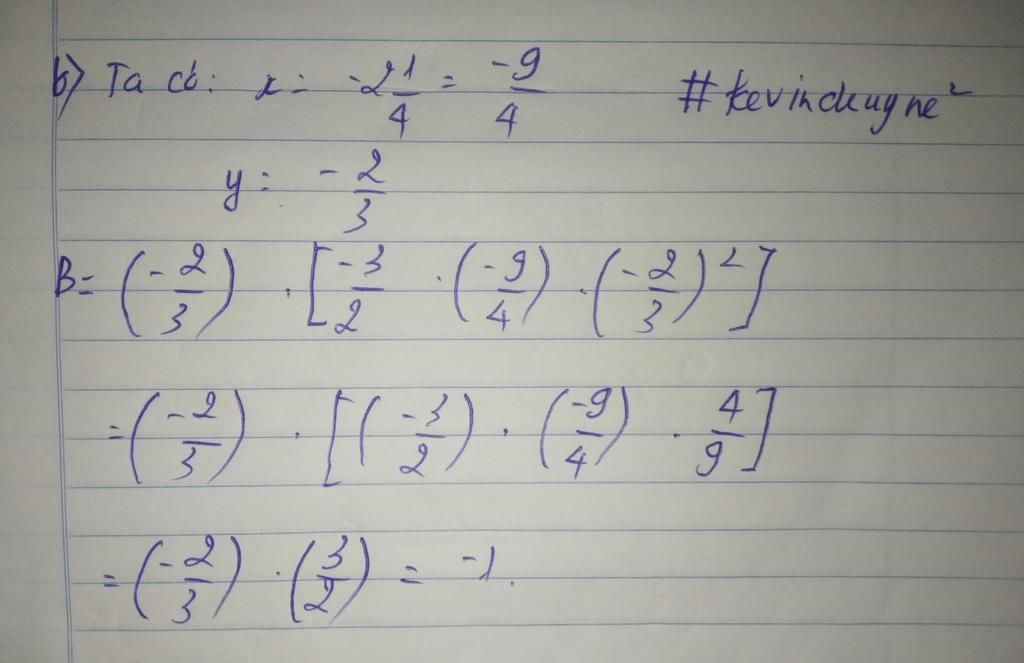 b) Ta có: x = -2 1/4 = -9/4 #kevindeugne²
y = -2/3
B = (-2/3) . [-3/2 . (-9/4) . (-2/3)²]
= (-2/3) . [(-3/2) . (-9/4) . 4/9]
= (-2/3) . (3/2) = -1.